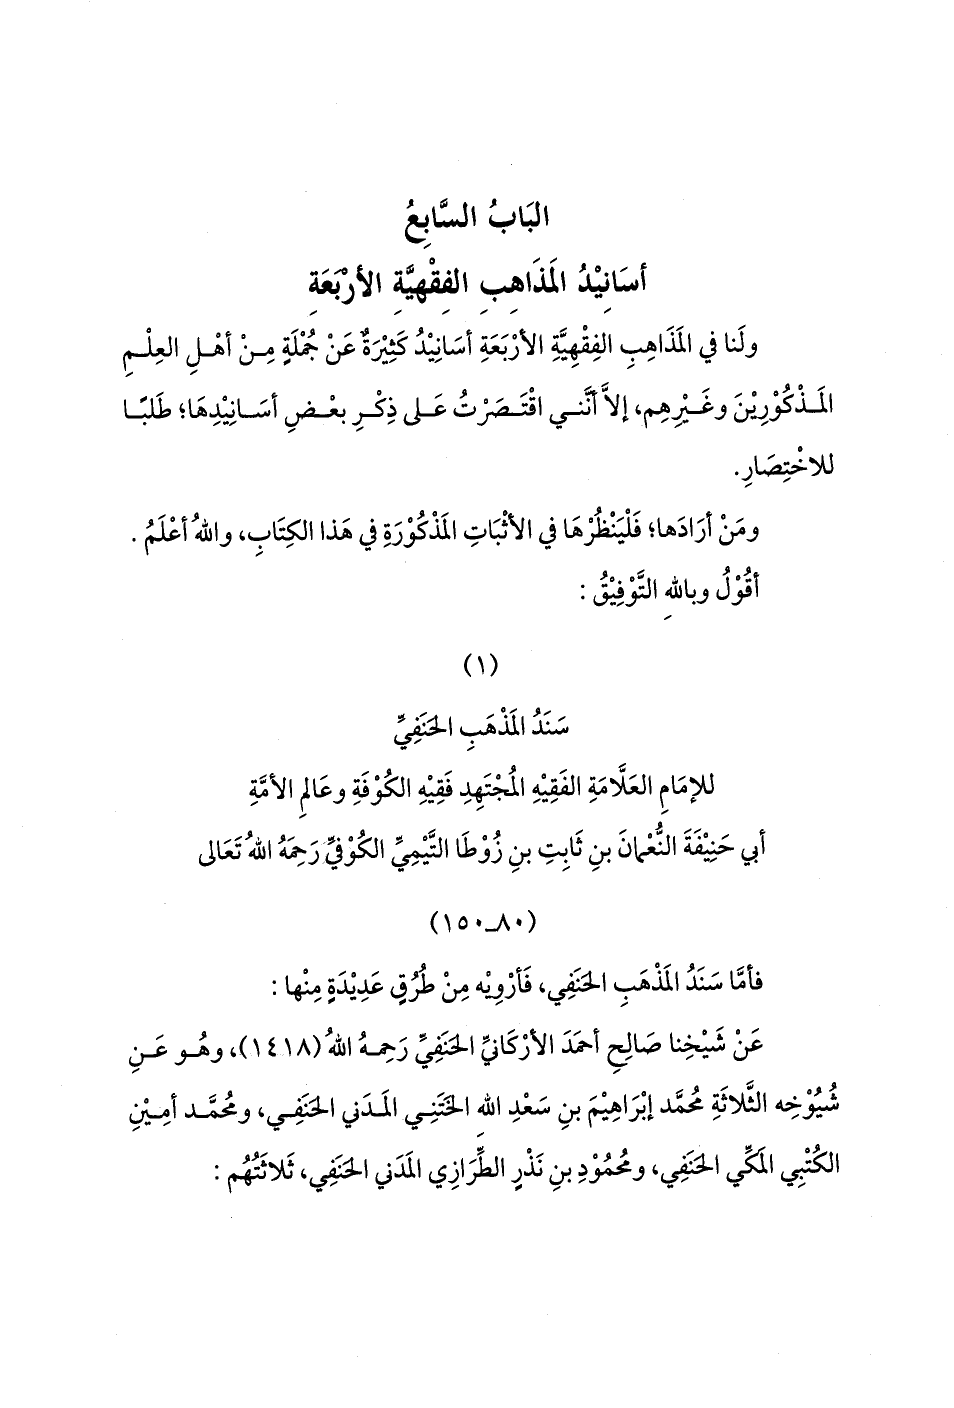 البَابُ السَّابِعُ
أسَانِيْدُ المَذَاهِبِ الفِقْهِيَّةِ الأرْبَعَةِ
ولَنا في المَذَاهِبِ الفِقْهِيَّةِ الأرْبَعَةِ أسَانِيْدُ كَثِيْرَةٌ عَنْ جُمْلَةٍ مِـنْ أهْـلِ العِلْـمِ
المَـذْكُوْرِيْنَ وغَـيْرِهِم، إلاَّ أنَّنـي اقْتَـصَرْتُ عَـلى ذِكْـرِ بعْـضِ أسَـانِيْدِهَا؛ طَلَبًـا
للاخْتِصَارِ.
ومَنْ أرَادَها؛ فَلْيَنْظُرْهَا في الأثْبَاتِ المَذْكُوْرَةِ في هَذا الكِتَابِ، واللهُ أعْلَمُ .
أقُوْلُ وباللهِ التَّوْفِيْقُ :
(١)
سَنَدُ المَذْهَبِ الحَنَفِيِّ
للإمَامِ العَلَّامَةِ الفَقِيْهِ المُجْتَهِدِ فَقِيْهِ الكُوْفَةِ وعَالمِ الأمَّةِ
أبي حَنِيْفَةَ النُّعْمانَ بنِ ثَابِتِ بنِ زُوْطَا التَّيْمِيِّ الكُوْفيِّ رَحِمَهُ اللهُ تَعَالى
(٨٠ـ١٥٠)
فأمَّا سَنَدُ المَذْهَبِ الحَنَفِي، فَأرْوِيْه مِنْ طُرُقٍ عَدِيْدَةٍ مِنْها :
عَنْ شَيْخِنا صَالِحِ أحمَدَ الأرْكَانيِّ الحَنَفِيِّ رَحِمـهُ اللهُ (١٤١٨)، وهُـو عَـنِ
شُيُوْخِه الثَّلاثَةِ مُحمَّد إبْرَاهِيْمَ بنِ سَعْدِ اللهِ الخَتَنِي المَدَني الحَنَفِـي، ومُحمَّـد أمِـيْنِ
الكُتْبِي المَكِّي الحَنَفِي، ومحْمُوْدِ بنِ نَذْرٍ الطِّرَازِي المَدَني الحَنَفِي، ثَلاثَتُهُم :